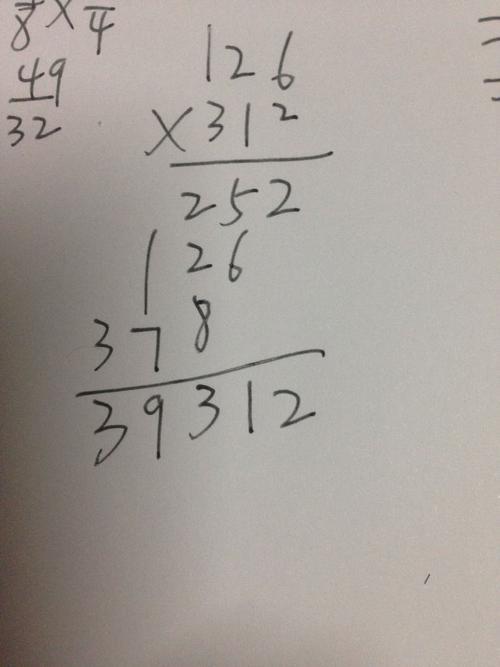 8 × 4
49
32
126
×312
252
126
378
39312